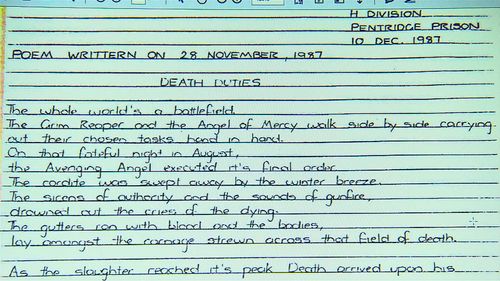 H DIVISION
PENTRIDGE PRISON
10 DEC. 1987
POEM WRITTERN ON 28 NOVEMBER, 1987
DEATH DUTIES
The whole world's a battlefield.
The Grim Reaper and the Angel of Mercy walk side by side carrying
out their chosen tasks hand in hand.
On that fateful night in August,
the Avenging Angel executed it's final order.
The cordite was swept away by the winter breeze.
The sirens of authority and the sounds of gunfire,
drowned out the cries of the dying.
The gutters ran with blood and the bodies,
lay amongst the carnage strewn across that field of death.
As the slaughter reached it's peak Death arrived upon his